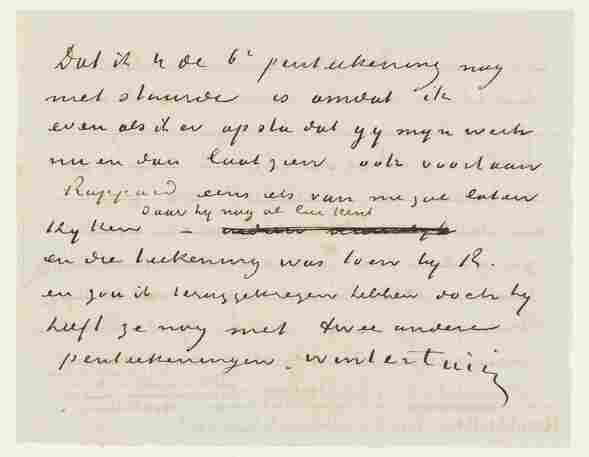 Dat ik U de 6e penteekening nog
niet stuurde is omdat ik
even als ik er op sta dat gy myn werk
nu en dan laat zien ook voortaan
Rappard eens iets van me zal laten
daar hy nog al lui kent
kyken –
en die teekening was toen by R.
en zou ik teruggekregen hebben doch hy
heeft ze nog met twee andere
penteekeningen. wintertuin